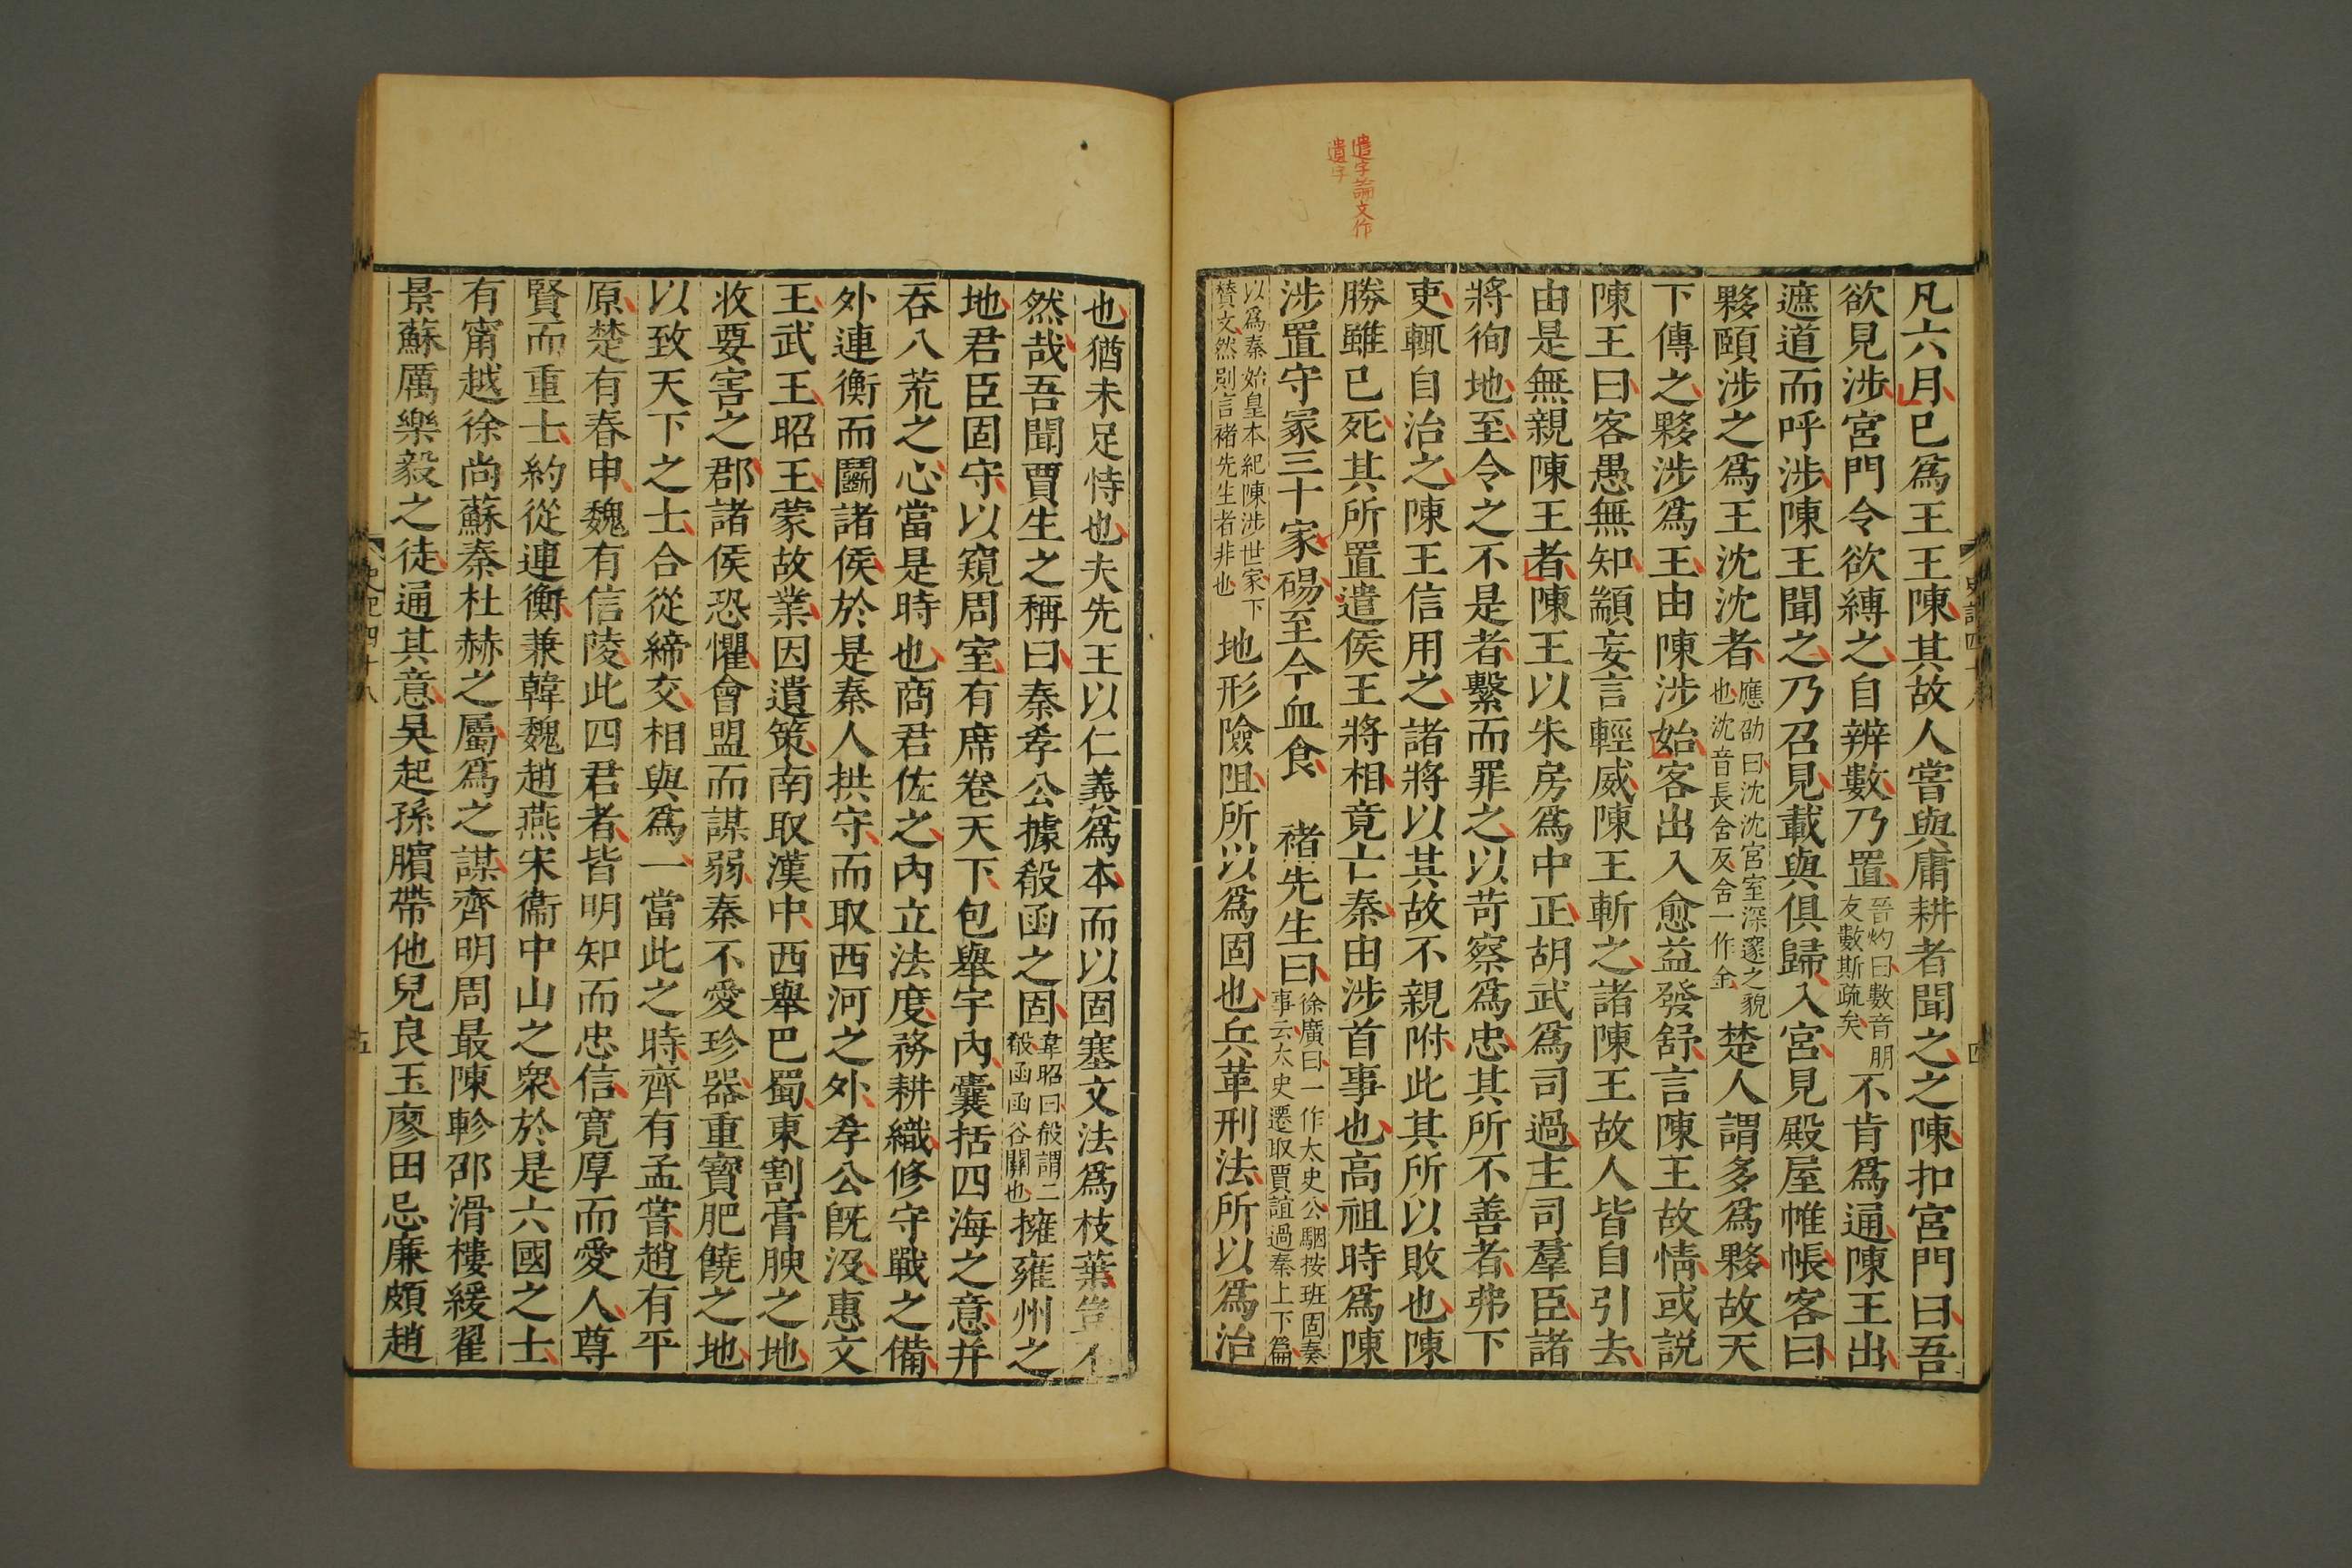 遣字論文作
遺字
凡六月已爲王王陳其故人嘗與庸耕者聞之之陳扣宮門曰吾
欲見涉宮門令欲縛之自辨數乃置晉灼曰數音朋友數斯疏矣不肯爲通陳王出
遮道而呼涉陳王聞之乃召見載與俱歸入宮見殿屋帷帳客曰
夥頤涉之爲王沈沈者應劭曰沈沈宮室深邃之貌也沈音長含反含一作金楚人謂多爲夥故天
下傳之夥涉爲王由陳涉始客出入愈益發舒言陳王故情或説
陳王曰客愚無知顓妄言輕威陳王斬之諸陳王故人皆自引去
由是無親陳王者陳王以朱房爲中正胡武爲司過主司羣臣諸
將徇地至令之不是者繫而罪之以苛察爲忠其所不善者弗下
吏輒自治之陳王信用之諸將以其故不親附此其所以敗也陳
勝雖已死其所置遣侯王將相竟亡秦由涉首事也高祖時爲陳
涉置守冢三十家碭至今血食 褚先生曰徐廣曰一作太史公駰按班固奏事云太史遷取賈誼過秦上下篇
以爲秦始皇本紀陳涉世家下賛文然則言褚先生者非也地形險阻所以爲固也兵革刑法所以爲治
也猶未足恃也夫先王以仁義爲本而以固塞文法爲枝葉豈不
然哉吾聞賈生之稱曰秦孝公據殽函之固韋昭曰殽謂二殽函函谷關也擁雍州之
地君臣固守以窺周室有席卷天下包舉宇內囊括四海之意并
吞八荒之心當是時也商君佐之內立法度務耕織修守戰之備
外連衡而鬭諸侯於是秦人拱守而取西河之外孝公旣沒惠文
王武王昭王蒙故業因遺策南取漢中西舉巴蜀東割膏腴之地
收要害之郡諸侯恐懼會盟而謀弱秦不愛珍器重寶肥饒之地
以致天下之士合從締交相與爲一當此之時齊有孟嘗趙有平
原楚有春申魏有信陵此四君者皆明知而忠信寬厚而愛人尊
賢而重士約從連衡兼韓魏趙燕宋衞中山之衆於是六國之士
有甯越徐尚蘇秦杜赫之屬爲之謀齊明周最陳軫邵滑樓緩翟
景蘇厲樂毅之徒通其意吳起孫臏帶他兒良王廖田忌廉頗趙
史記四十八
五